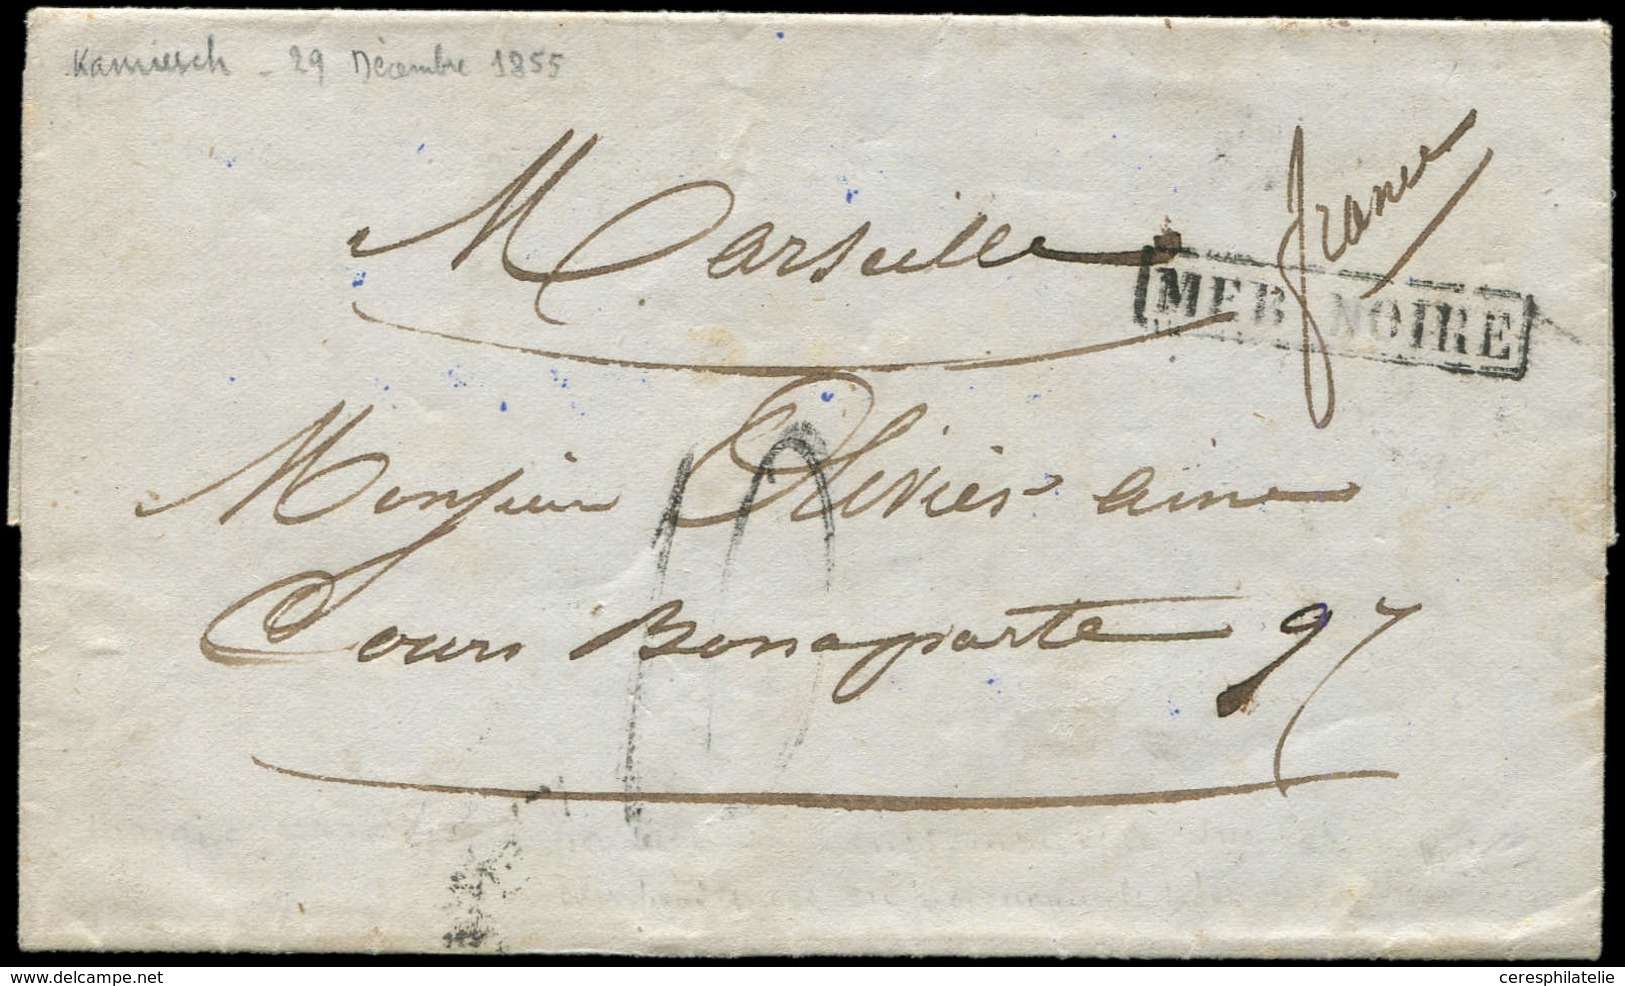 Kamiesch - 29 Décembre 1855
France
Marseille
MER NOIRE
Monsieur Olivier aine
10
Cours Bonaparte 97
www.delcampe.net
ceresphilatelie